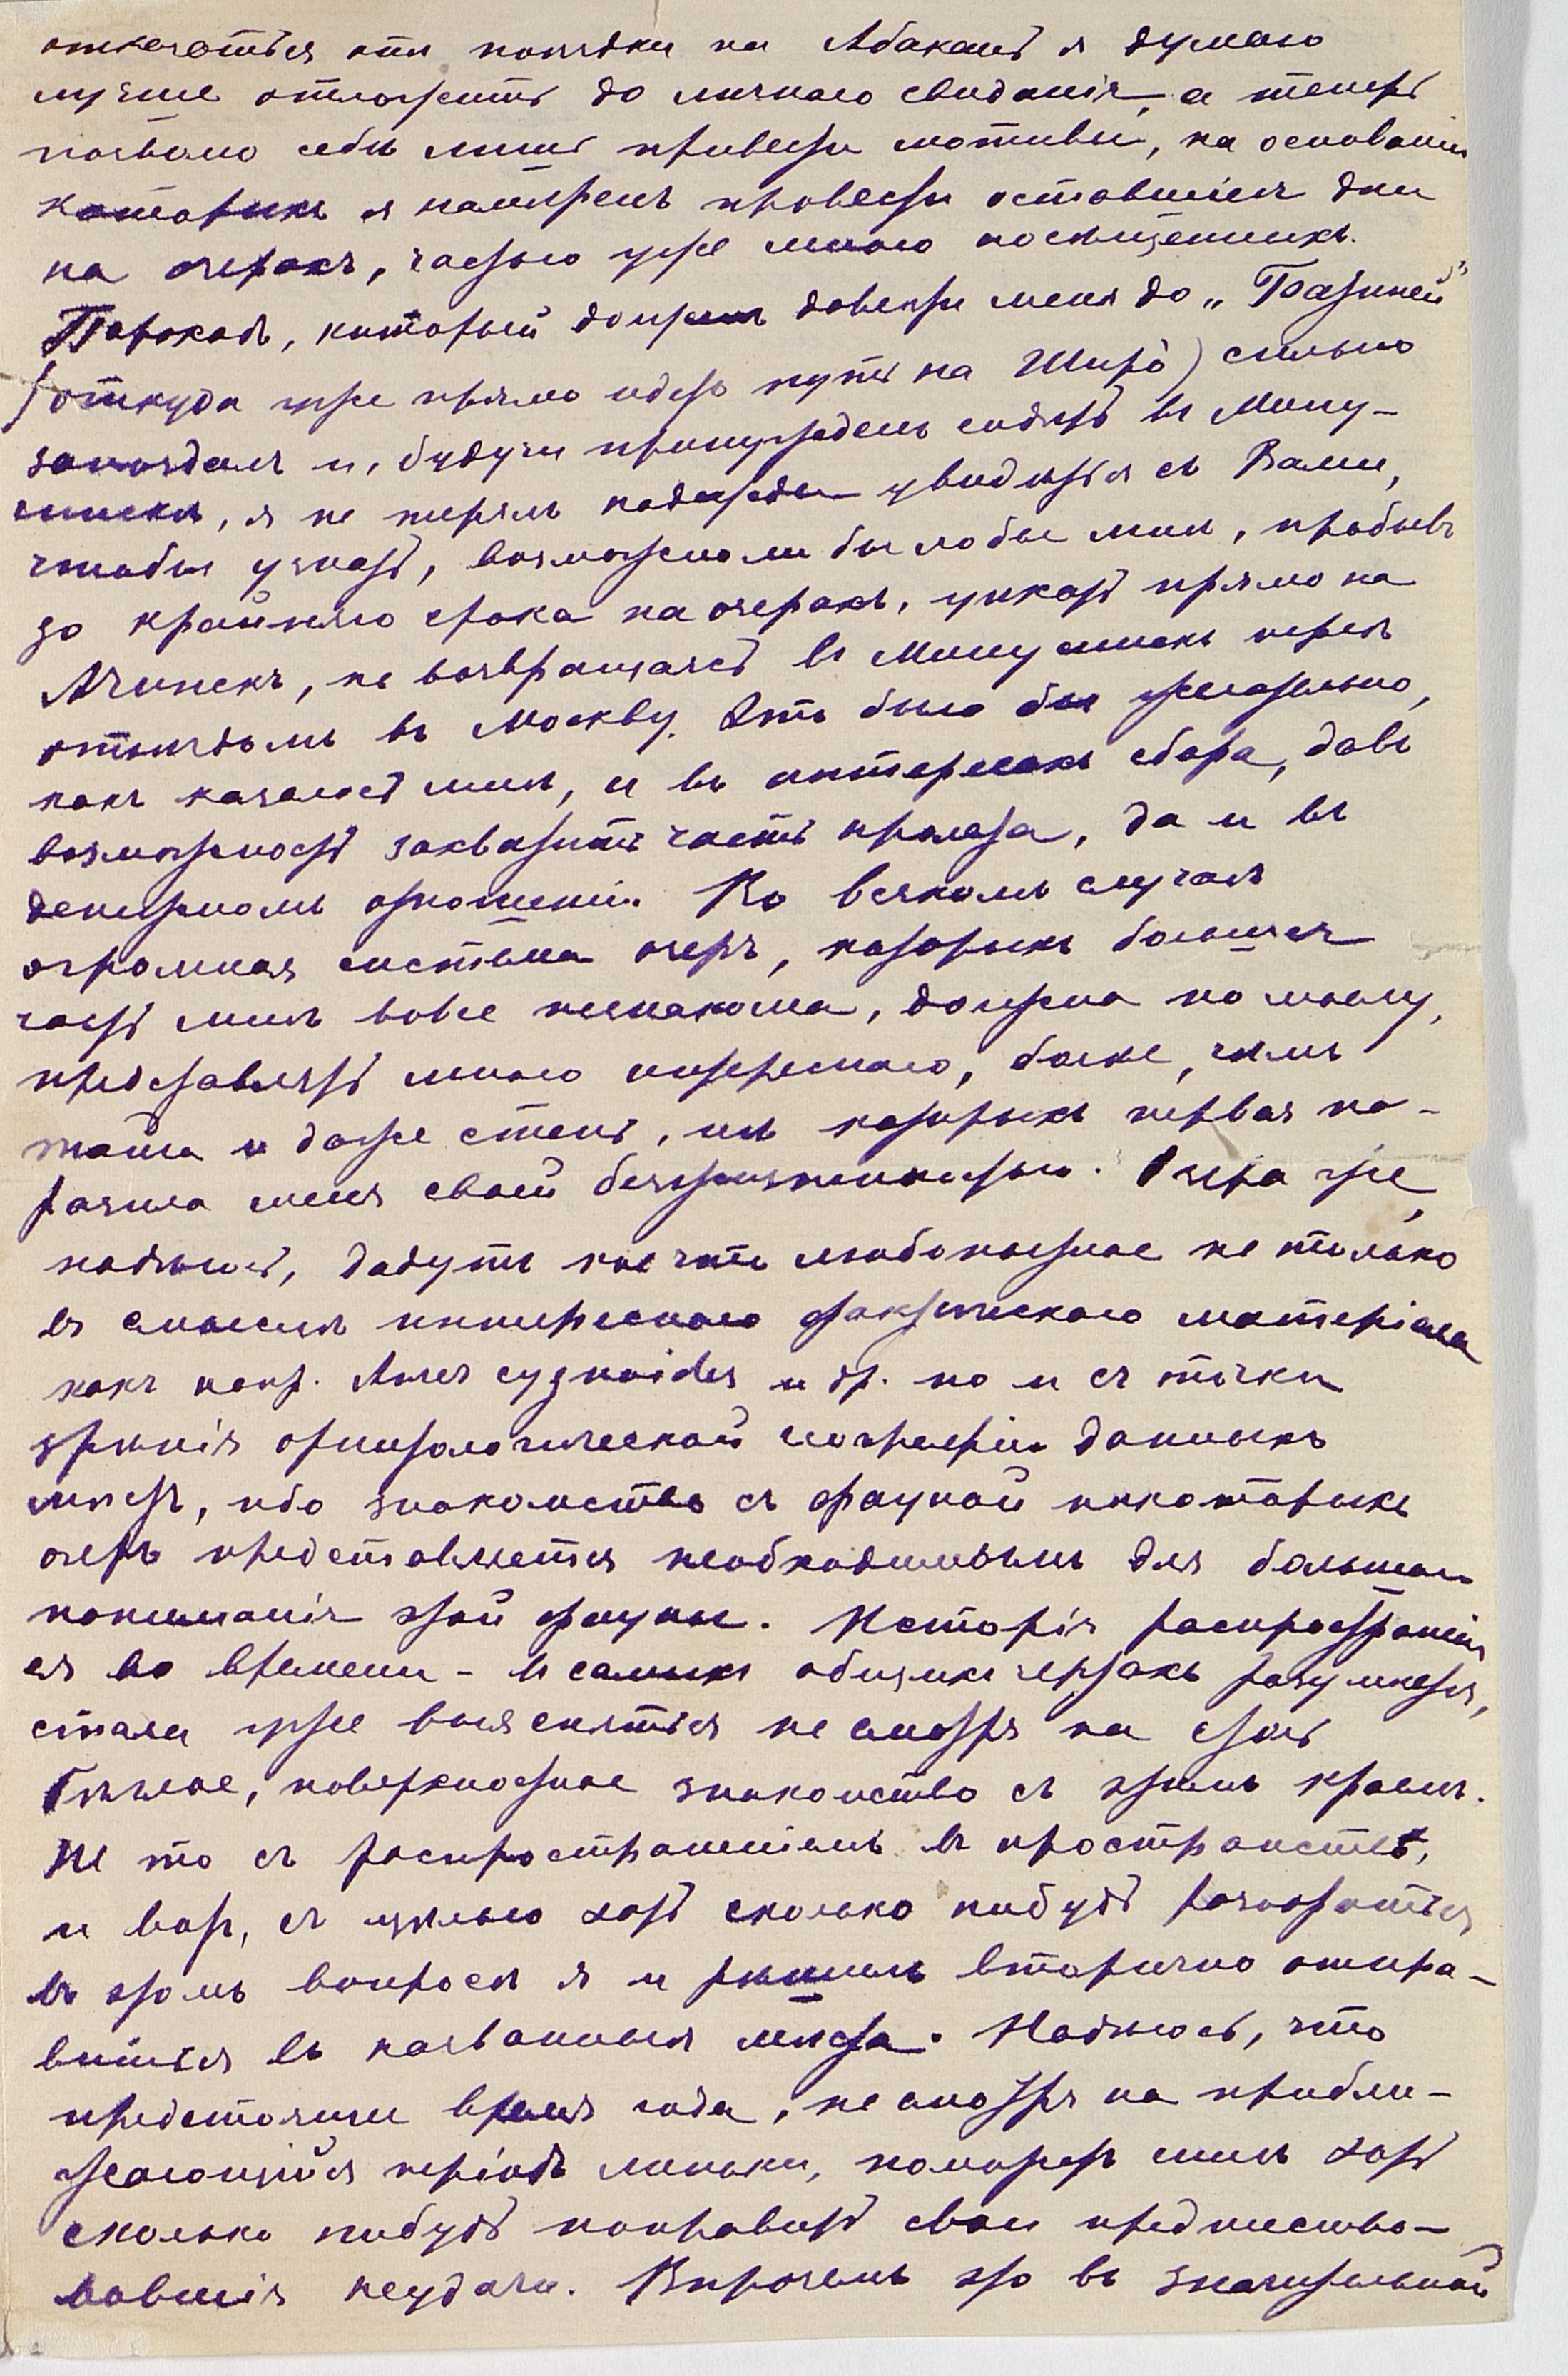 отказаться отъ поѣздки на Абаканъ я думаю
лучше отложить до личнаго свиданія, а теперь
позволю себѣ лишь привести мотивы, на основаніи
которыхъ я намѣренъ провести оставшіеся дни
на озерахъ, частью уже мною посѣщенныхъ.
Пароходъ, который долженъ довезти меня до „Батеней"
(откуда уже прямо идетъ путь на Широ) сильно
запоздалъ и, будучи принужденъ сидѣть въ Мину-
синскѣ, я не терялъ надежды увидѣться съ Вами,
чтобы узнать, возможно ли было бы мнѣ, пробывъ
до крайняго срока на озерахъ, уѣхать прямо на
Ачинскъ, не возвращаясь въ Минусинскъ передъ
отъѣздомъ въ Москву. Это было бы желательно,
какъ казалось мнѣ, и въ интересахъ сбора, давъ
возможность захватить часть пролета, да и въ
денежномъ отношеніи. Во всякомъ случаѣ
огромная система озеръ, которыхъ большая
часть мнѣ вовсе незнакома, должна по моему,
представлять много интереснаго, болѣе, чѣмъ
тайга и даже степь, изъ которыхъ первая по-
разила меня своей безжизненностью. Озера же,
надѣюсь, дадутъ кое что любопытное не только
въ смыслѣ интереснаго фактическаго матеріала
какъ напр. Anser cygnoides и др. но и съ точки
зрѣнія орнитологической географіи данныхъ
мѣстъ, ибо знакомство съ фауной нѣкоторыхъ
озеръ представляется необходимымъ для большаго
пониманія этой фауны. Исторія распространенія
ея во времени – въ самыхъ общихъ чертахъ разумѣется,
стала уже выясняться не смотря на столь
бѣглое, поверхностное знакомство съ этимъ краемъ.
Не то съ распространеніемъ въ пространствѣ,
и вотъ, съ цѣлью хоть сколько нибудь разобраться
въ этомъ вопросѣ я и рѣшилъ вторично отпра-
виться въ названныя мѣста. Надѣюсь, что
предстоящее время года, не смотря на прибли-
жающійся періодъ линьки, поможетъ мнѣ хоть
сколько нибудь поправить свои предшество-
вавшія неудачи. Впрочемъ это въ значительной